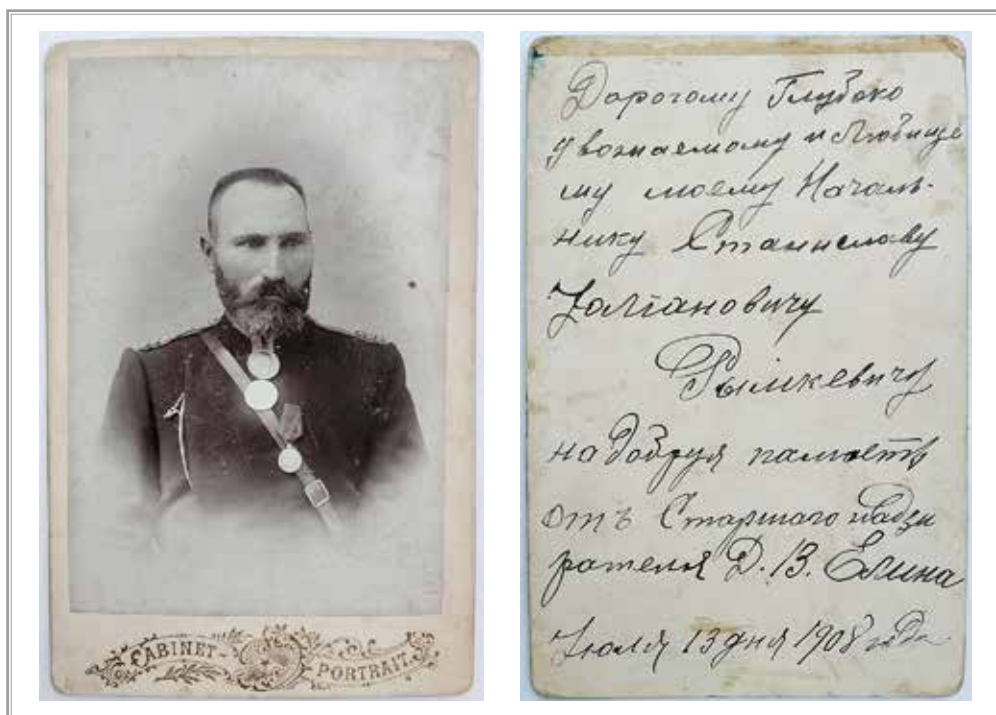 CABINET-
PORTRAIT.
Дорогому Глубоко
Уважаемому и Любяще
му моему Началь-
нику Станиславу
Уолiановичу
Рымкевичу
на Добруя память
отъ Старшаго надзи
рателя Д. В. Елина
Июля 13 дня 1908 года